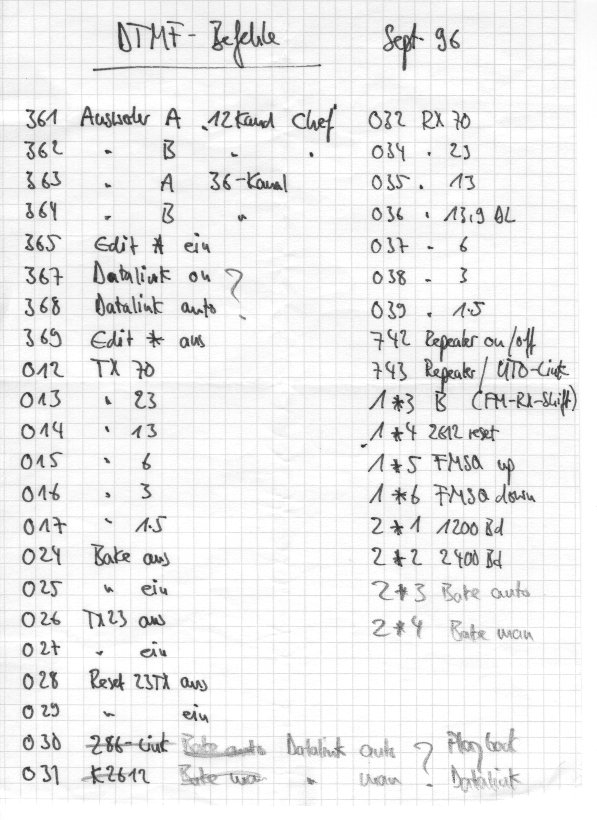 DTMF-Befehle Sept 96
361 Auswahl A "12 Kanal Chef"
362 " B " "
363 " A 36-Kanal
364 " B "
365 Edit * ein
367 Datalink on ?
368 Datalink auto
369 Edit * aus
012 TX 70
013 " 23
014 " 13
015 " 6
016 " 3
017 " 1.5
024 Bake aus
025 " ein
026 TX23 aus
027 " ein
028 Reset 23TX aus
029 " ein
030 Z86-Link Bake auto Datalink auto ? Playback
031 K2612 Bake man " man Datalink
032 RX 70
034 " 23
035 " 13
036 " 13,9 DL
037 " 6
038 " 3
039 " 1.5
742 Repeater on/off
743 Repeater / UTO-Link
1*3 B (FM-RX-Shift)
1*4 2612 reset
1*5 FMSQ up
1*6 FMSQ down
2*1 1200 Bd
2*2 2400 Bd
2*3 Bake auto
2*4 Bake man